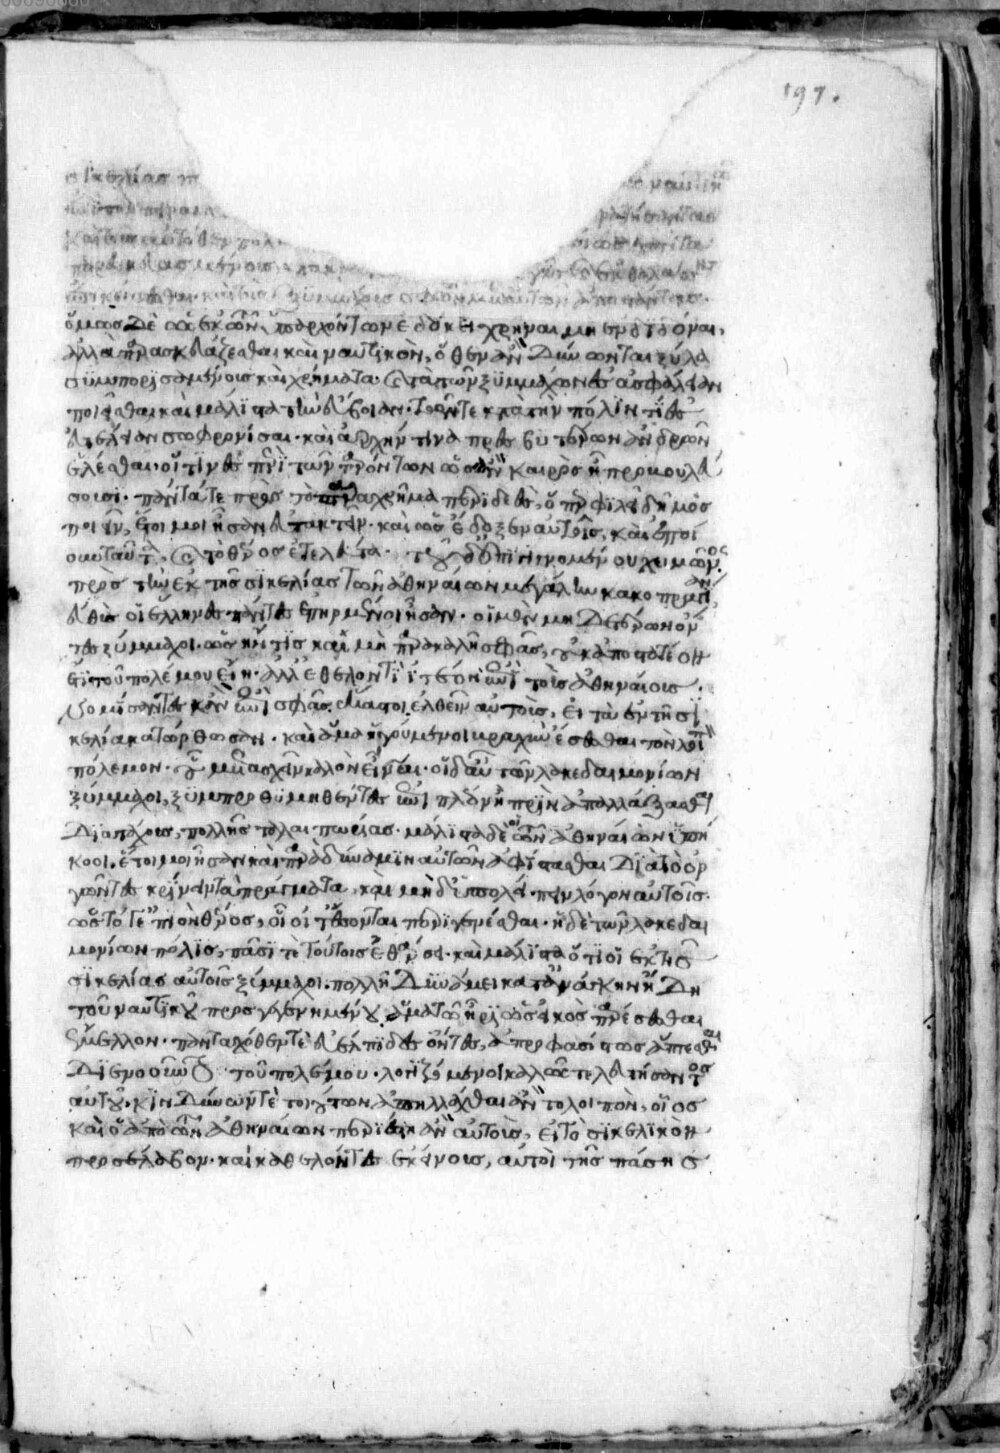 197.
σικελίας
ναυτικῶ
καὶ
καὶ
παρασκευασαμένους
ἀντικεῖσθαι. καὶ τοὺς ξυμμάχους σφῶν μάλιστα ἀποστάντας.
ὅμως δὲ ὡς ἐκ τῶν ὑπαρχόντων ἐδόκει χρῆναι μὴ ἐνδιδόναι,
ἀλλὰ παρασκευάζεσθαι καὶ ναυτικὸν, ὅθεν ἂν δύνωνται ξύλα
ξυμπορισαμένους καὶ χρήματα. καὶ τὰ τῶν ξυμμάχων ἐς ἀσφάλειαν
ποιεῖσθαι καὶ μάλιστα τὴν εὔβοιαν. τῶν τε κατὰ τὴν πόλιν τι ἐς
εὐτέλειαν σωφρονίσαι. καὶ ἀρχήν τινα πρεσβυτέρων ἀνδρῶν
ἑλέσθαι. οἵτινες περὶ τῶν παρόντων ὡς ἂν καιρὸς ἦ προβουλεύ
σουσι. πάντα τε πρὸς τὸ παραχρῆμα περιδεὲς, ὅπερ φιλεῖ δῆμος
ποιεῖν, ἕτοιμοι ἦσαν εὐτακτεῖν. καὶ ὡς ἔδοξεν αὐτοῖς, καὶ ἐποί
ουν ταῦτα. καὶ τὸ θέρος ἐτελεύτα. τοῦ δ' ἐπιγιγνομένου χειμῶνος
πρὸς τὴν ἐκ τῆς σικελίας τῶν ἀθηναίων μεγάλην κακοπραγίαν
εὐθὺς οἱ ἕλληνες πάντες ἐπηρμένοι ἦσαν. οἱ μὲν μηδετέρων ὄν
τες ξύμμαχοι. ὡς ἤν τις καὶ μὴ παρακαλῆ σφᾶς, οὐκ ἀποστατέον
ἔτι τοῦ πολέμου εἴη. ἀλλ' ἐθελοντὶ ἰτέον ἐπὶ τοὺς ἀθηναίους.
νομίσαντες κἂν ἐπὶ σφᾶς ἕκαστοι ἐλθεῖν αὐτοὺς, εἰ τὰ ἐν τῆ σι
κελία κατώρθωσαν. καὶ ἅμα ἡγούμενοι βραχὺν ἔσεσθαι τὸν λοιπὸν
πόλεμον. οὗ μετασχεῖν καλὸν εἶναι. οἱ δ' αὖ τῶν λακεδαιμονίων
ξύμμαχοι, ξυμπροθυμηθέντες ἐπὶ πλέον ἢ πρὶν ἀπαλλάξασθαι
διατάχους, πολλῆς ταλαιπωρίας. μάλιστα δὲ οἱ τῶν ἀθηναίων ὑπή
κοοι. ἕτοιμοι ἦσαν καὶ παρὰ δύναμιν αὐτῶν ἀφίστασθαι διὰ τὸ ὀρ
γῶντες κρίνειν τὰ πράγματα. καὶ μὴ δ' ὑπολείπειν λόγον αὐτοῖς.
ὡς τό τε ἐπιὸν θέρος, οἷοί τ' ἔσονται περιγενέσθαι. ἡ δὲ τῶν λακεδαι
μονίων πόλις, πᾶσί τε τούτοις ἐθάρσει. καὶ μάλιστα ὅτι οἱ ἐκ τῆς
σικελίας αὐτοῖς ξύμμαχοι. πολλῆ δυνάμει κατ' ἀνάγκην ἤδη
τοῦ ναυτικοῦ προσγεγενημένου ἅμα τῶ ἦρι ὡς εἰκὸς παρέσεσθαι
ἔμελλον. πανταχόθεν τε εὐέλπιδες ὄντες, ἀπροφασίστως ἅπτεσθαι
διενοοῦντο τοῦ πολέμου. λογιζόμενοι καλῶς τελευτήσαντος
αὐτοῦ. κινδύνων τε τοιούτων ἀπηλλάχθαι ἂν τολοιπὸν, οἷος
καὶ ὁ ἀπὸ τῶν ἀθηναίων περιέστη ἂν αὐτοὺς, εἰ τὸ σικελικὸν
προσέλαβον. καὶ καθελόντες ἐκείνους, αὐτοὶ τῆς πάσης